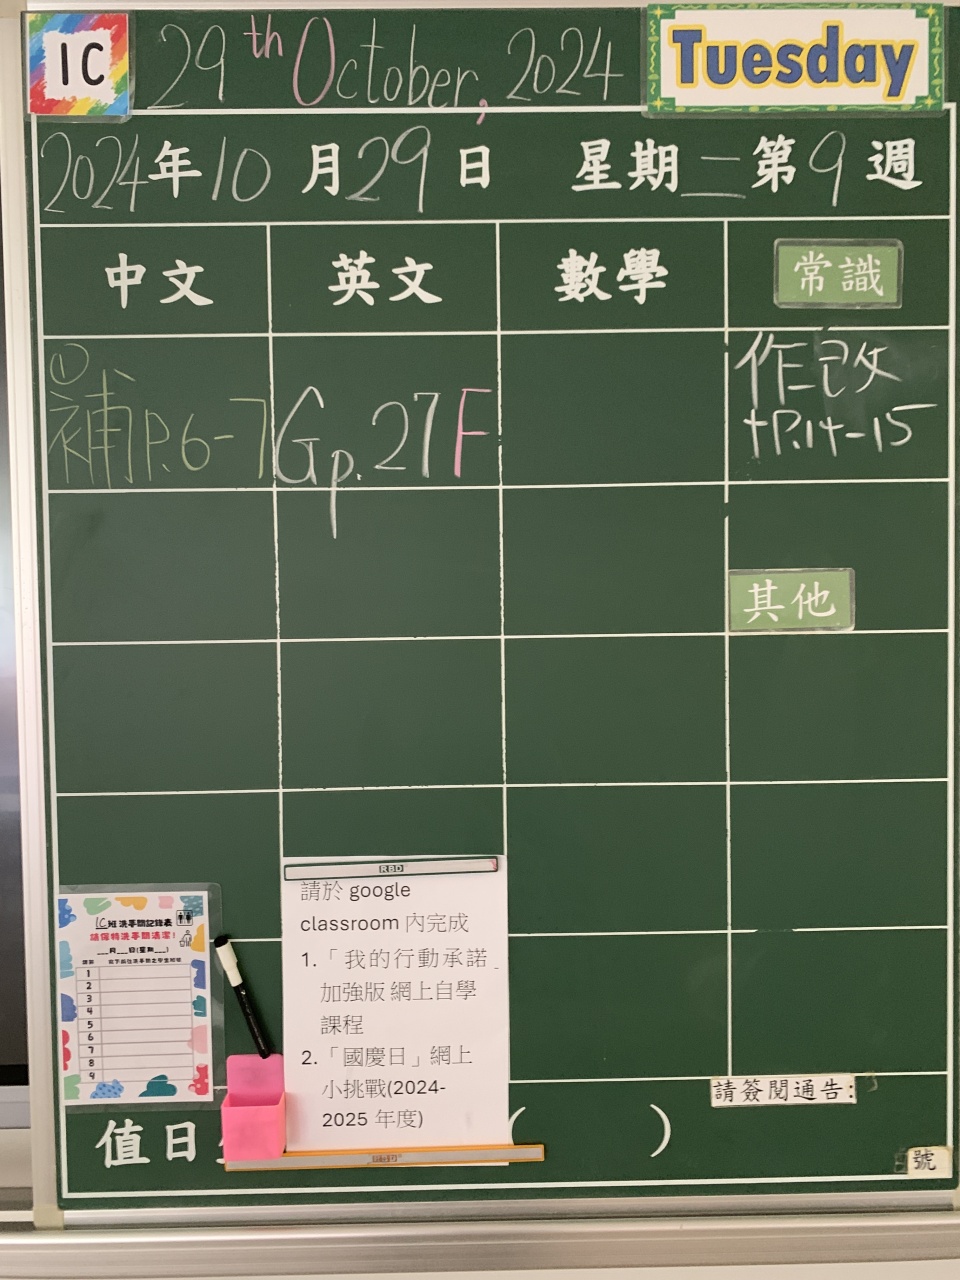 1C
29th October, 2024
Tuesday
2024年10月29日 星期二 第9週
中文 英文 數學 常識
①
補P.6-7
Gp.27F
作已改
+P.14-15
其他
RBD
請於 google
classroom 內完成
1.「我的行動承諾
加強版 網上自學
課程
2.「國慶日」網上
小挑戰(2024-
2025 年度)
1C班洗手間記錄表
請保持洗手間清潔!
___月___日(星期___)
1
2
3
4
5
6
7
8
9
請簽閱通告:
值日
( )
號